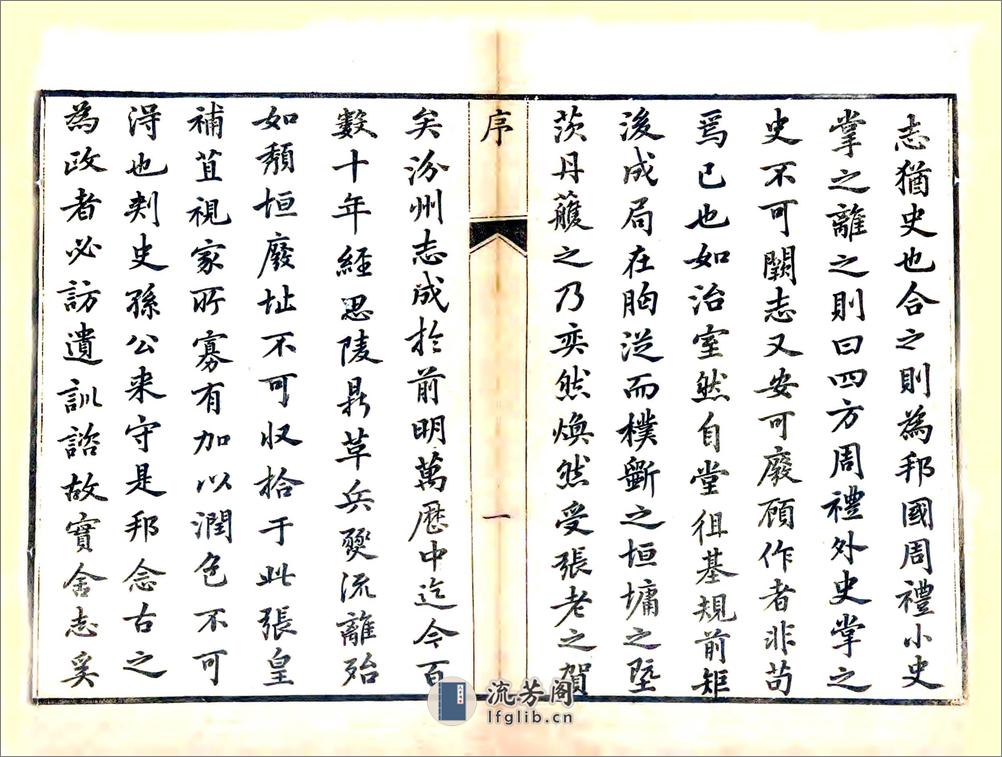 志猶史也合之則為邦國周禮小史
掌之離之則曰四方周禮外史掌之
史不可闕志又安可廢顧作者非苟
焉已也如治室然自堂徂基規前矩
後成局在胸從而樸斲之垣墉之塈
茨丹雘之乃奕然煥然受張老之賀
序
一
矣汾州志成於前明萬歷中迄今百
數十年經思陵鼎革兵燹流離殆
如頹垣廢址不可収拾于此張皇
補苴視家所寡有加以潤色不可
淂也刾史孫公来守是邦念古之
為政者必訪遺訓諮故實舍志奚
流芳阁
lfglib.cn